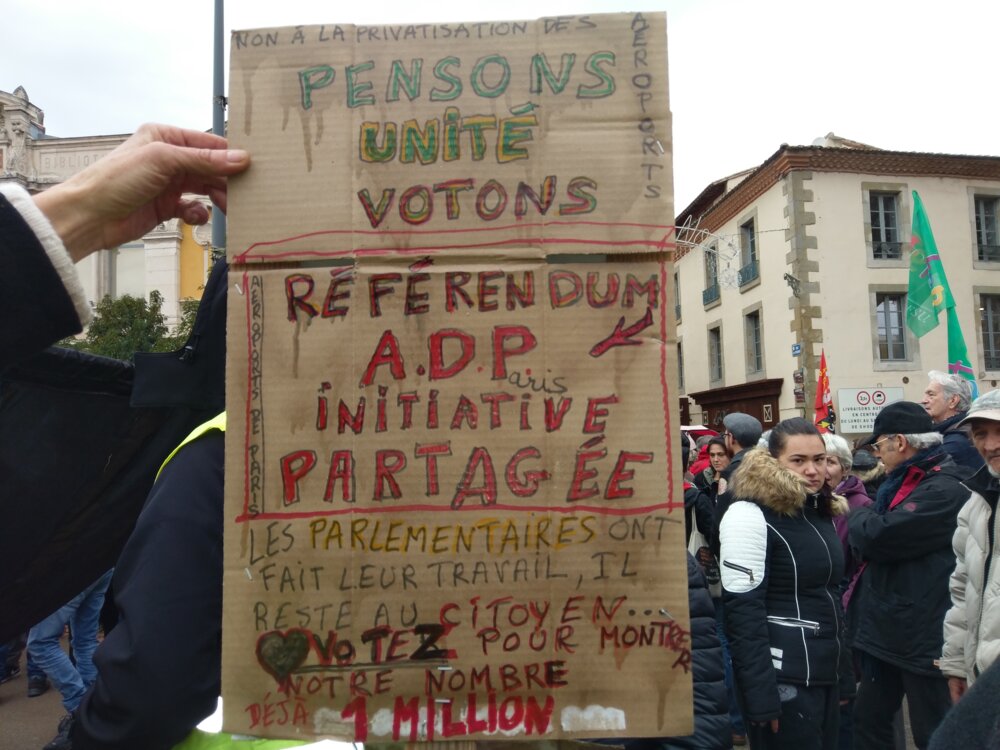 NON À LA PRIVATISATION DES
AEROPORTS
PENSONS
UNITÉ
VOTONS
AEROPORTS DE PARIS
RÉFÉRENDUM
A.D.P.aris
iNITIATIVE
PARTAGÉE
LES PARLEMENTAIRES ONT
FAIT LEUR TRAVAIL, IL
RESTE AU CITOYEN...
VOTEZ POUR MONTRER
NOTRE NOMBRE
DÉJÀ 1 MILLION
BIBLIO
LIVRAISONS AUTO
EN CENTRE
DE LUNDI AU SA
DE 5H00